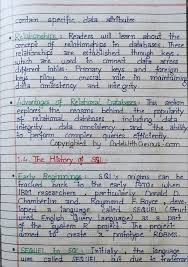 contain specific data attributes
• Relationships : Readers will learn about the
concept of relationships in databases. These
relationships are established through keys,
which are used to connect data across
different tables. Primary keys and foreign
keys play a crucial role in maintaining
data consistency and integrity.
• Advantages of Relational Databases : This section
explores the
of relational databases, including data
integrity, data consistency, and the ability
to perform complex queries efficiently.
1.4. The History of SQL
• Early Beginnings : SQL's origins can be
tracked back to the early 1970s when
IBM researchers, particularly Donald D.
Chamberlin and Raymond F. Boyce, deve-
loped a language called SEQUEL (Struct
ured English Query Language) as a part
of the System R project. The project
aimed to create a prototype RDBMS.
• SEQUEL to SQL : Initially, the language
was called SEQUEL, but due to trademar